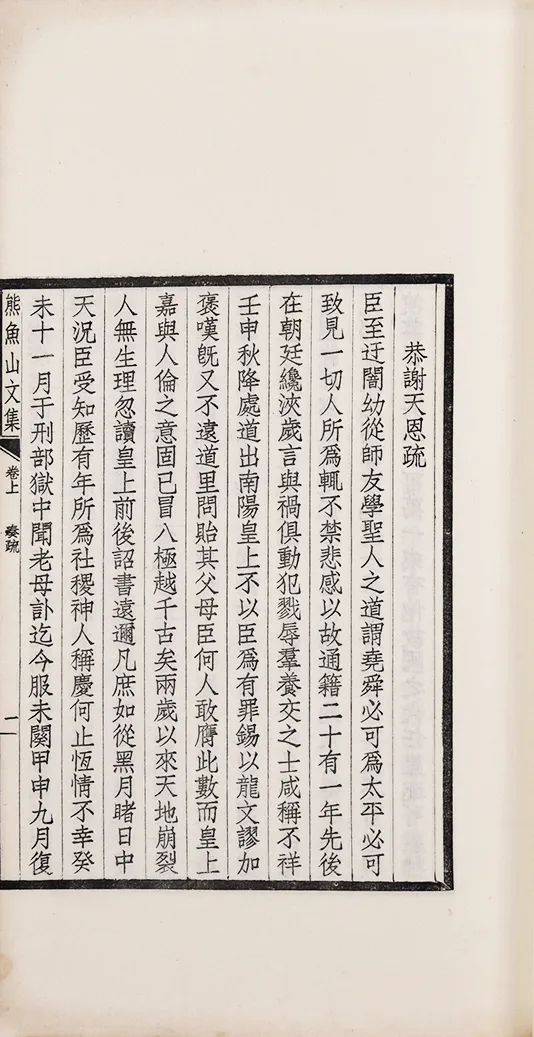 恭謝天恩疏
臣至迂闇幼從師友學聖人之道謂堯舜必可爲太平必可
致見一切人所爲輒不禁悲感以故通籍二十有一年先後
在朝廷纔浹歲言與禍俱動犯戮辱羣養交之士咸稱不祥
壬申秋降處道出南陽皇上不以臣爲有罪錫以龍文謬加
褒嘆旣又不遠道里問貽其父母臣何人敢膺此數而皇上
嘉與人倫之意固已冒八極越千古矣兩歲以來天地崩裂
人無生理忽讀皇上前後詔書遠邇凡庶如從黑月睹日中
天況臣受知歷有年所爲社稷神人稱慶何止恆情不幸癸
未十一月于刑部獄中聞老母訃迄今服未闋甲申九月復
熊魚山文集
卷上
奏疏
二